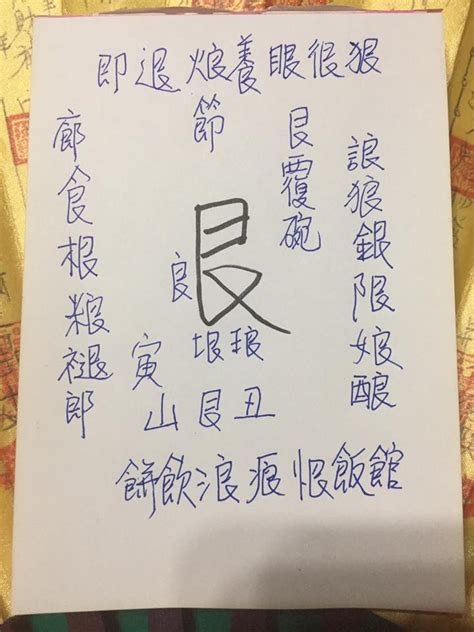 即退烺養眼很狠
節
艮覆碗
狼銀限娘
艮
良
廊食根粮褪郎
垠琅
寅
山艮丑
餅飲浪痕恨飯館